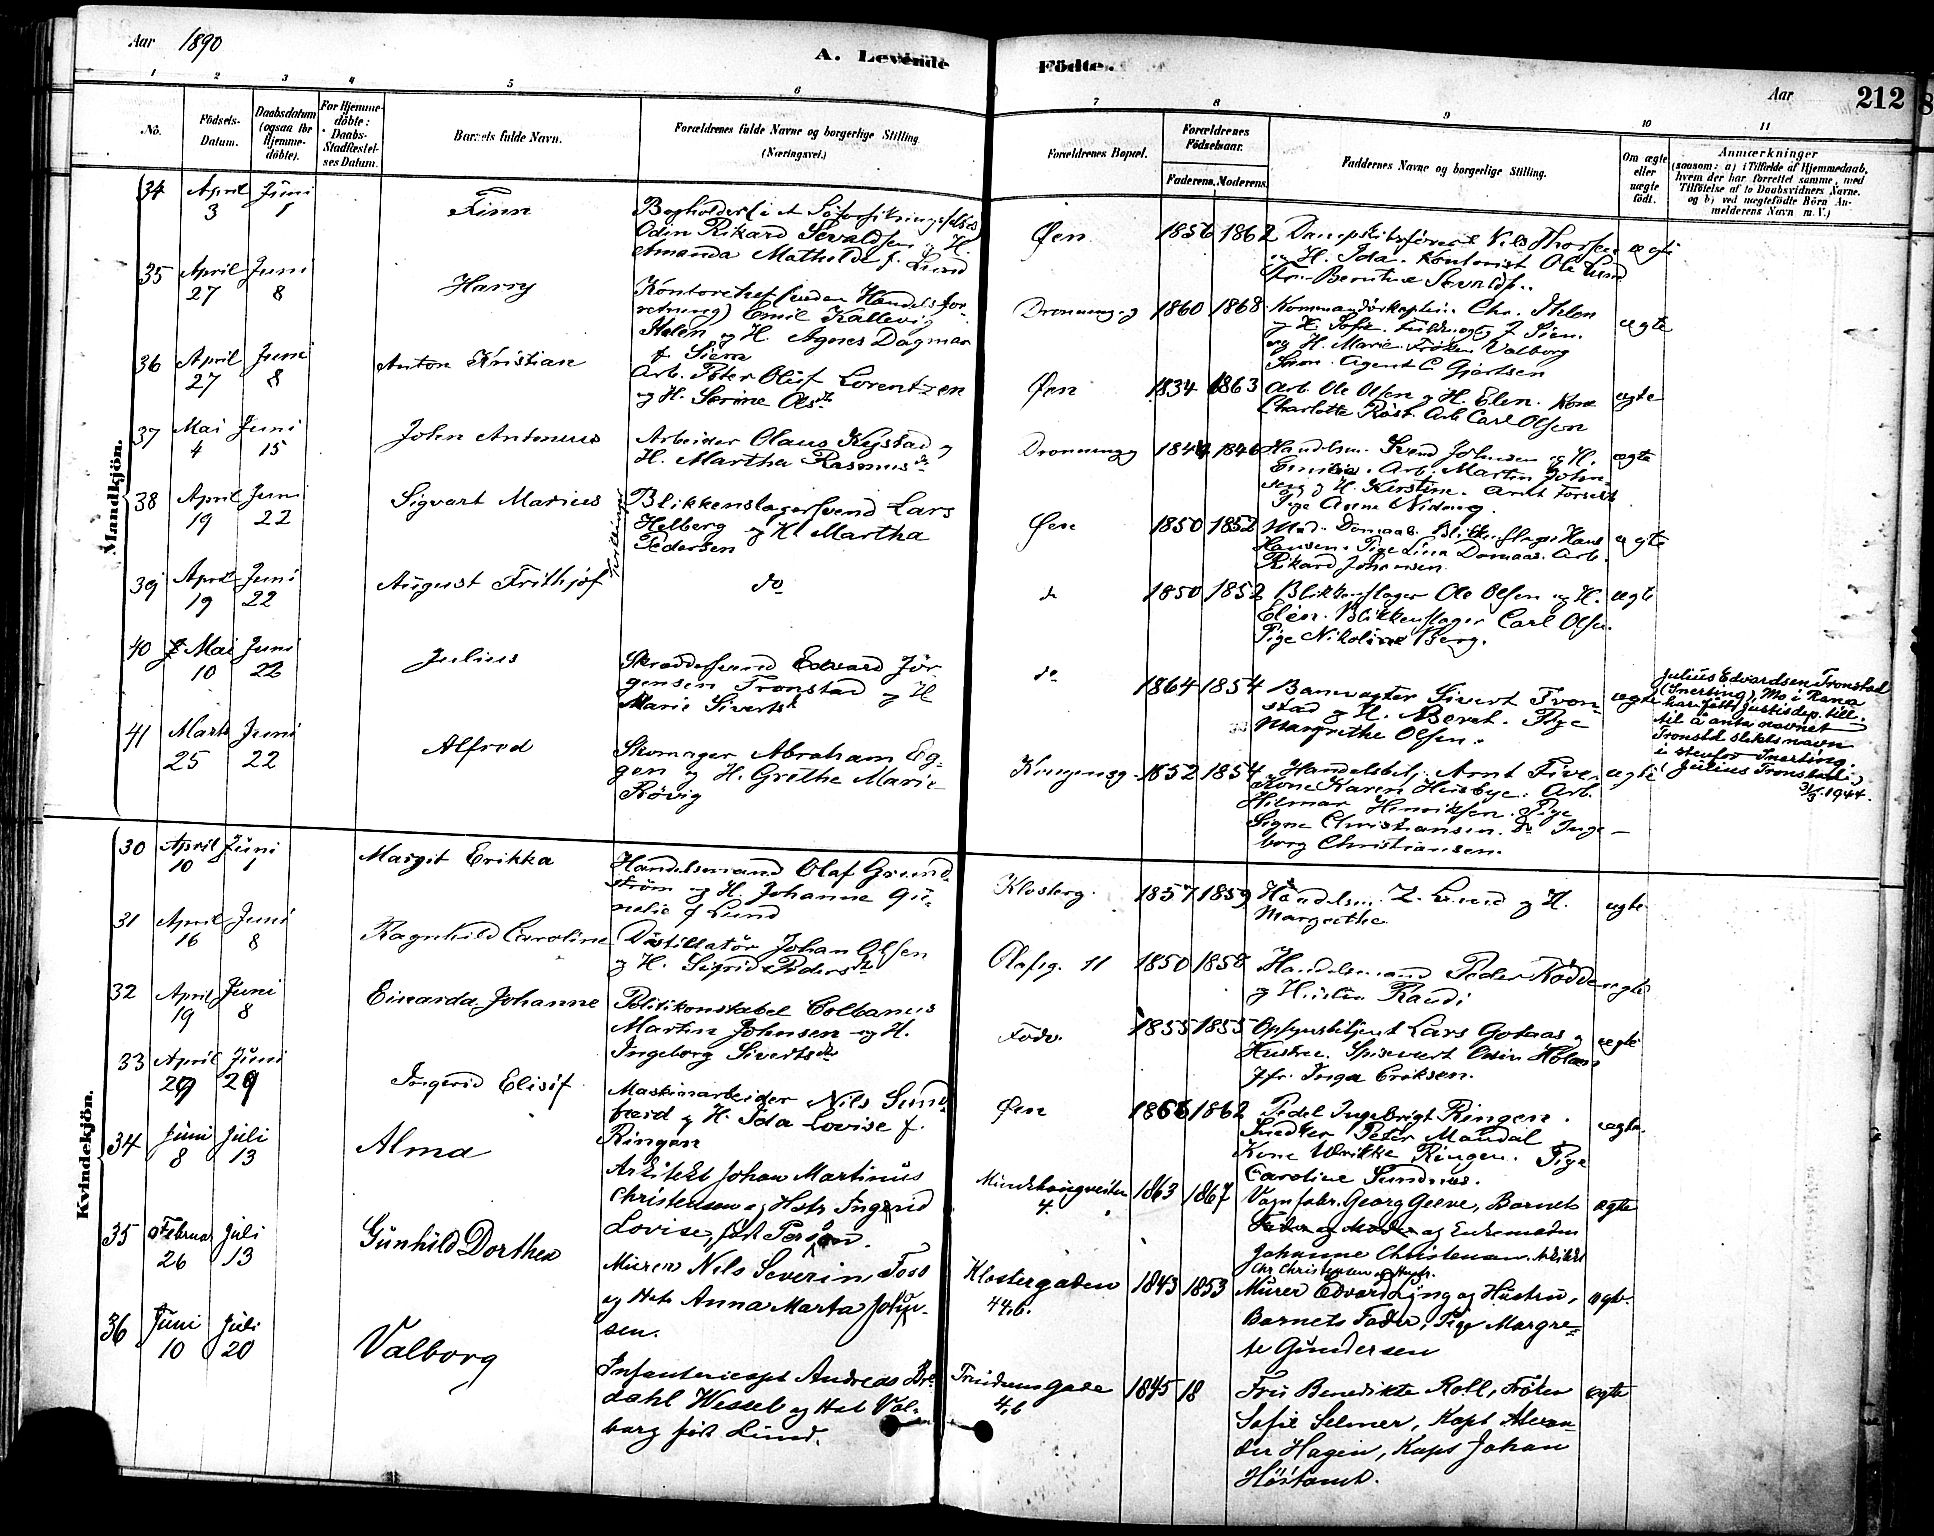 Aar 1890
A. Levende Födte.
Aar 212
1 2 3 4 5 6 7 8 9 10 11
No.
Födsels-Datum.
Daabsdatum (ogsaa for Hjemme-döbte).
For Hjemme-döbte: Daabs-Stadfæstel-ses Datum.
Barnets fulde Navn.
Forældrenes fulde Navne og borgerlige Stilling (Næringsvei.)
Forældrenes Bopæl.
Forældrenes Födselsaar.
Faderens. Moderens.
Faddernes Navne og borgerlige Stilling.
Om ægte eller uægte födt.
Anmærkninger
(saasom: a) i Tilfælde af Hjemmedaab,
hvem der har forrettet samme, med
Tilföielse af to Daabsvidners Navne.
og b) ved uægtefödte Börn An-
melderens Navn m. V.)
Mandkjön.
34 April 3 Juni 1 Finn
Odin Rikard Sevaldsen og H.
Amanda Mathilde f. Lund
Øen 1856 1862 Nils Thorsen
og H. Ida. Kontorist Ole Lund
ægte
35 April 27 Juni 8 Harry
Kontorchef (uden Handelsfor-
retning) Emil Kallevig
Holen og H. Agnes Dagmar
f. Siem
Dronningg 1860 1868 Kommandörkaptein Chr.
og H. Marie. Frøken Valborg
Siem. Agent C Gjertsen
ægte
36 April 27 Juni 8 Anton Kristian
Arb. Peter Oluf Lorentzen
og H. Serine Olsdr
Øen 1834 1863 Arb. Ole Olsen og H. Elen. Kone
Charlotte Röst. Arb Carl Olsen
ægte
37 Mai 4 Juni 15 John Antonius
Arbeider Olaus Kystad og
H. Martha Rasmusdr
Dronningg 1844 1846 Handelsm. Svend Johnsen og H.
Arb. Martin John-
sen og H. Kirstine. Arnt
Pige Anne
ægte
38 April 19 Juni 22 Sigvart Marius
Tvillinger
Blikkenslagersvend Lars
Helberg og H Martha
Pedersen
Øen 1850 1852
Hansen. Pige Lina Domaas. Arb.
Rikard Johansen
ægte
39 April 19 Juni 22 August Frithjof
do
do 1850 1852 Blikkenslager Ole Olsen og H.
Elen. Blikkenslager Carl Olsen.
Pige Nikoline Berg.
ægte
40 Mai 10 Juni 22 Julius
Skræddersvend Edvard Jör-
gensen Tronstad og H
Marie Sivertsdr
do 1864 1854 Banevogter Sivert Tron-
stad og H. Beret. Pige
Margrethe Olsen.
ægte
Julius Edvardsen Tronstad
(Snerting), Mo i Rana
har fått Justisdep. till.
til å anta navnet
Tronstad slektsnavn
i stedfor Snerting.
(Julius Tronstad)
31/3 1944.
41 Marts 25 Juni 22 Alfred
Skomager Abraham Eg-
gen og H. Grethe Marie
Rövig
Kongensg 1852 1854 Handelsbetj. Arnt Five.
Kone Karen Husbye. Arb.
Hilmar Henriksen. Pige
Signe Christiansen. do Inge-
borg Christiansen.
ægte
Kvindekjön.
30 April 10 Juni 1 Margit Erikka
Handelsmand Olaf Grund-
ström og H. Johanne
f Lund
Klosterg. 1857 1859 Handelsm. Z. Lund og H.
Margrethe
ægte
31 April 16 Juni 8 Ragnhild Caroline
Destillatör Johan Olsen
og H. Sigrid Pedersdr
Olafsg. 11 1850 1858 Handelsmand Peder Rödde
og Hustru Randi
ægte
32 April 19 Juni 8 Einarda Johanne
Politikonstabel Colbanus
Martin Johnsen og H.
Ingeborg Sivertsdr
1855 1855 Opsynsbetjent Lars Gotaas og
Hustru. Spisevert Odin
Jfr. Inga Eriksen.
ægte
33 April 29 Juni 29 Ingerid Elisif
Maskinarbeider Nils Sund-
og H. Ida Lovise f.
Ringen
Øen 1866 1862 Pedel Ingebrigt Ringen.
Snedker Peter Mandal
Kone Ulrikke Ringen. Pige
Caroline Sundnes.
ægte.
34 Juni 8 Juli 13 Alma
Arkitekt Johan Martinus
Christensen og Hstr Ingerid
Lovise, født Persön.
4. 1863 1867 Vognfabr. Georg Geeve, Barnets
Fader og Moder og Enkemadam
Johanne Christensen. Arkitekt
Chr Christensen og Hustr.
ægte
35 Februar 26 Juli 13 Gunhild Dorthea
Murer Nils Severin Foss
og Hst. Anna Marta John-
sen.
Klostergaden 44b. 1843 1853 Murer Edvard Lyng og Hustru,
Barnets Fader, Pige Margre-
te Gundersen
ægte.
36 Juni 10 Juli 20 Valborg
Infantericapt Andreas
dahl Wessel og Hst Val-
borg født Lund.
4,b 1845 18 Fru Benedikte Roll, Frøken
Sofie Selmer, Kapt Alexan-
der Hagen, Kapt Johan
ægte